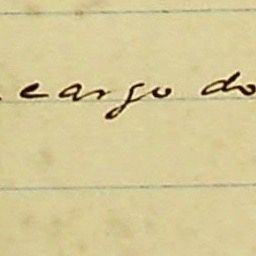 cargo do